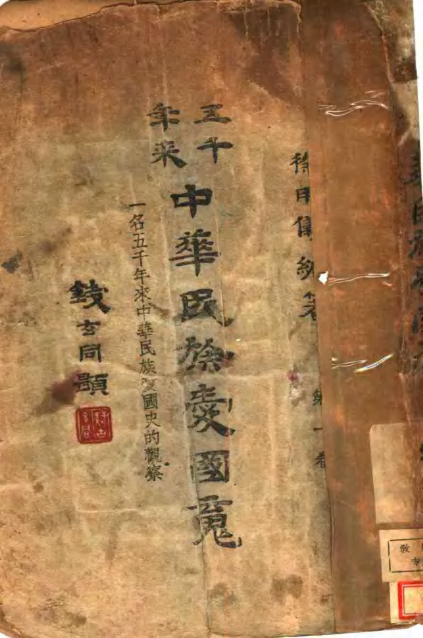 編著 第一卷
五千
年來
中華民族愛國魂
一名五千年來中華民族愛國史的觀察
錢玄同題